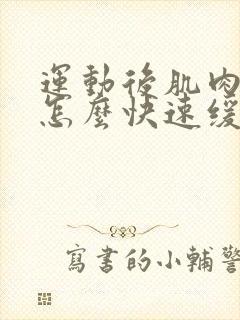 運動後肌肉
怎麼快速緩
寫書的小輔警